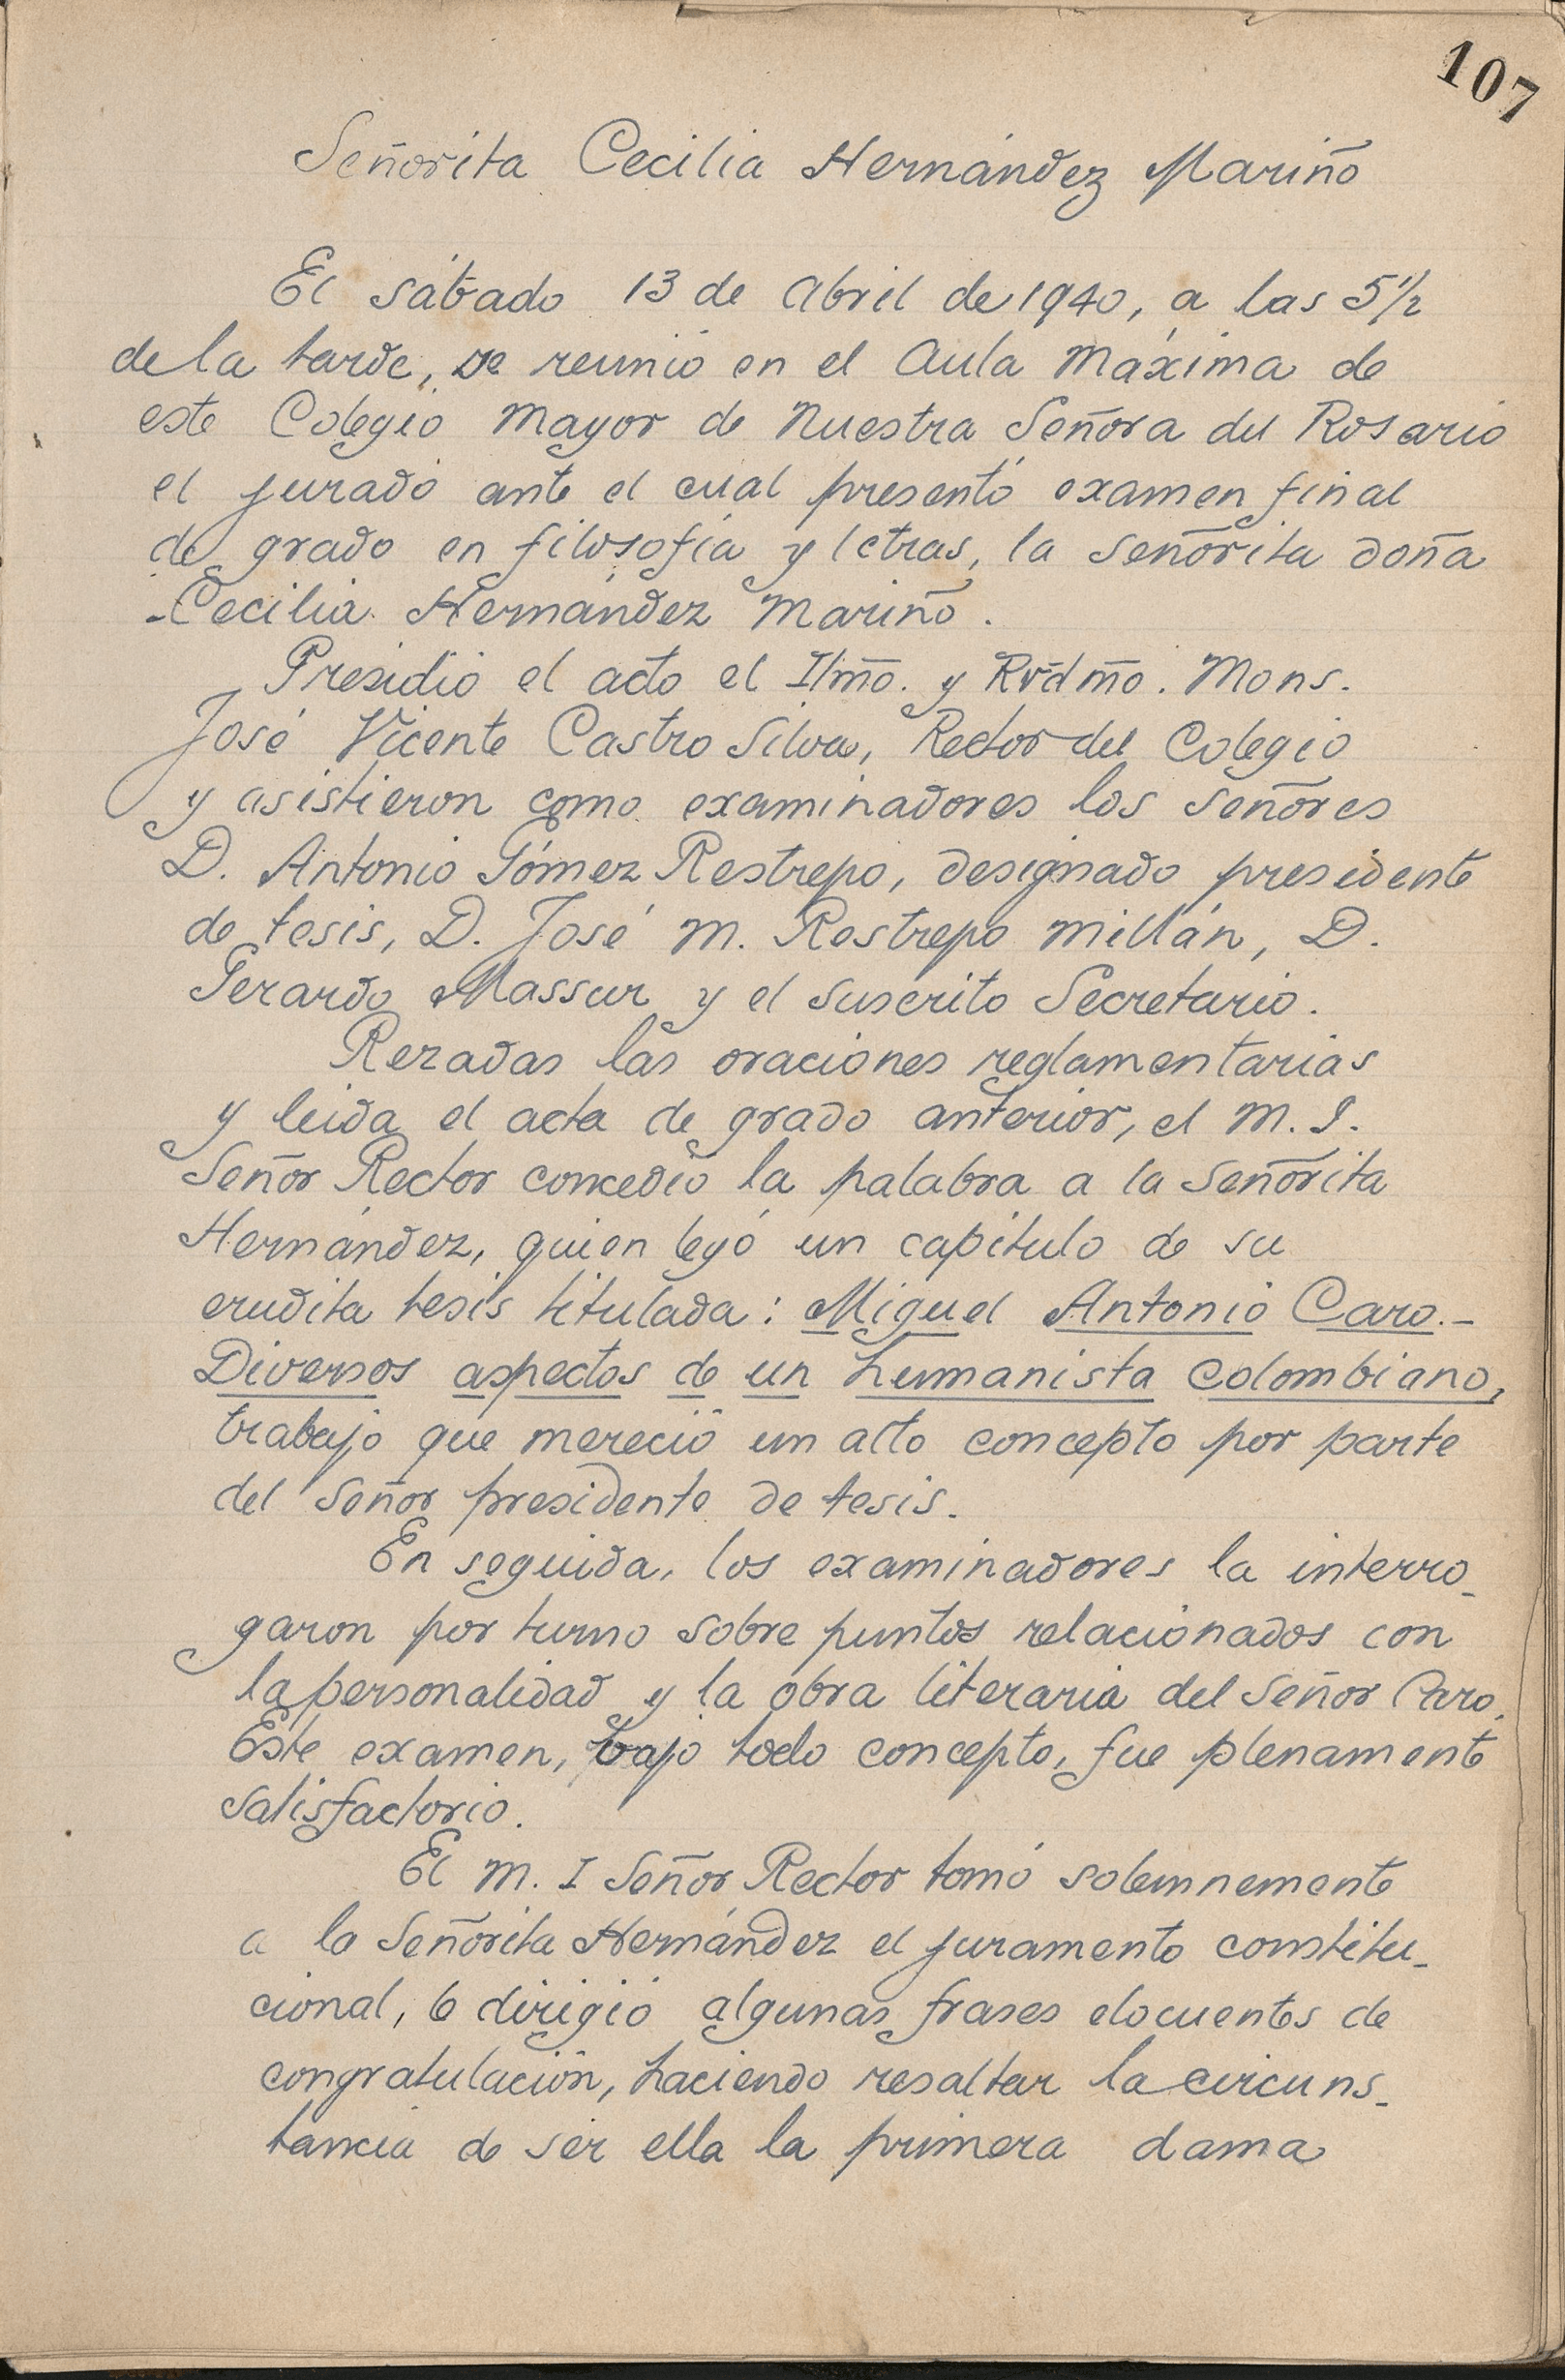 107
Señorita Cecilia Hernández Mariño
El sábado 13 de Abril de 1940, a las 5½
de la tarde, se reunió en el Aula Máxima de
este Colegio Mayor de Nuestra Señora del Rosario
el jurado ante el cual presentó examen final
de grado en filosofía y letras, la Señorita doña
Cecilia Hernández Mariño.
Presidió el acto el Ilmo. y Rvdmo. Mons.
José Vicente Castro Silva, Rector del Colegio
y asistieron como examinadores los Señores
D. Antonio Gómez Restrepo, designado presidente
de tesis, D. José M. Restrepo Millán, D.
Gerardo Massur y el suscrito Secretario.
Rezadas las oraciones reglamentarias
y leida el acta de grado anterior, el M. I.
Señor Rector concedió la palabra a la Señorita
Hernández, quien leyó un capítulo de su
erudita tesis titulada: Miguel Antonio Caro.-
Diversos aspectos de un humanista colombiano,
trabajo que mereció un alto concepto por parte
del Señor presidente de tesis.
En seguida, los examinadores la interro-
garon por turno sobre puntos relacionados con
la personalidad y la obra literaria del Señor Caro.
Este examen, bajo todo concepto, fue plenamente
satisfactorio.
El M. I Señor Rector tomó solemnemente
a la Señorita Hernández el juramento constitu-
cional, le dirigió algunas frases elocuentes de
congratulación, haciendo resaltar la circuns-
tancia de ser ella la primera dama